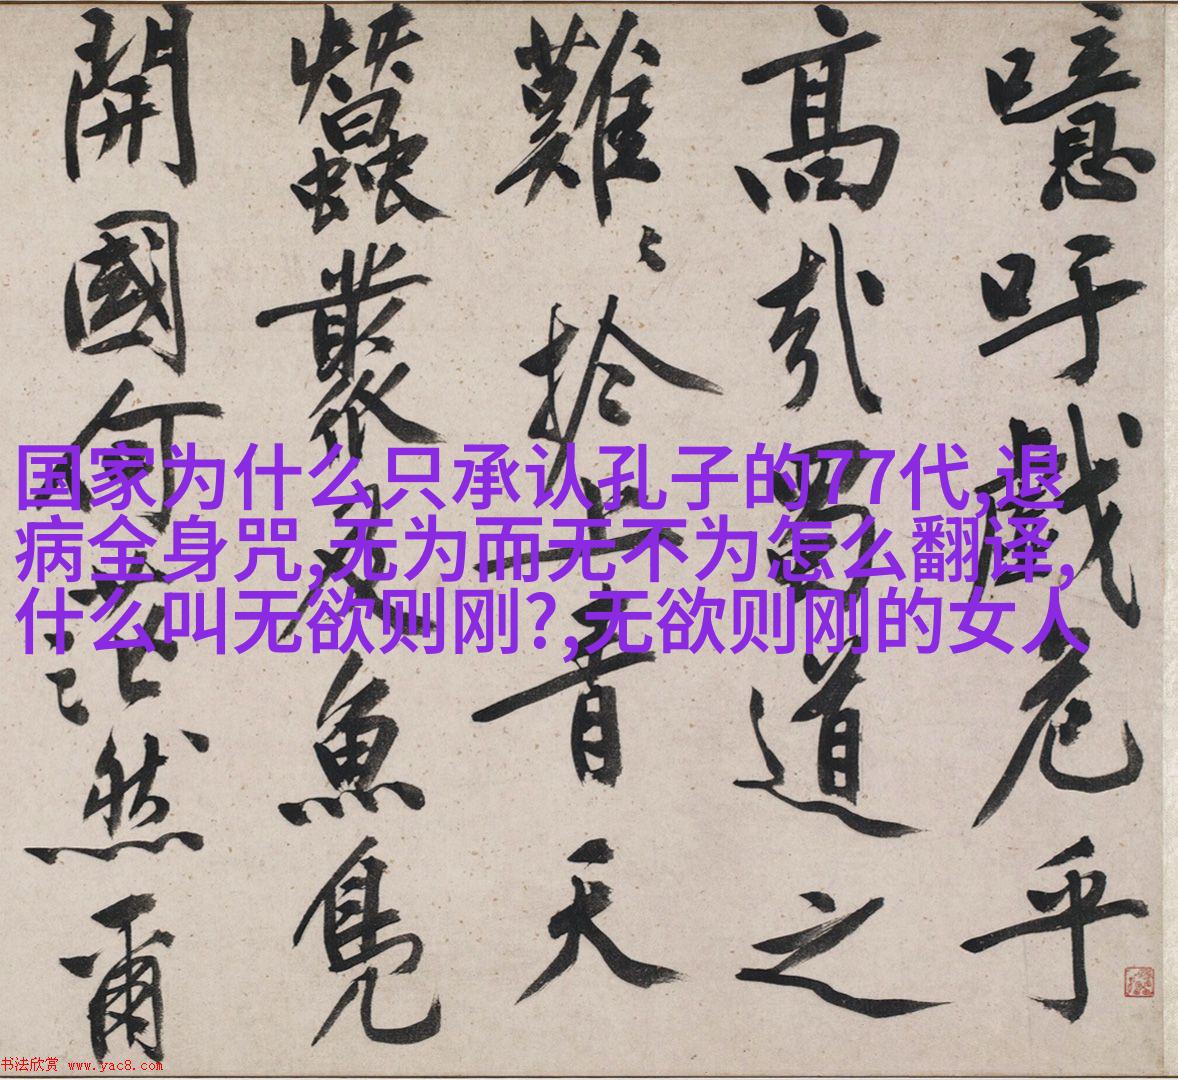 噫吁戲危乎
高哉蜀道之
難〻扵上青天
蠶叢及魚鳧
開國何茫然爾
国家为什么只承认孔子的77代,退
病全身咒,无为而无不为怎么翻译,
什么叫无欲则刚?,无欲则刚的女人
书法欣赏 www.yac8.com